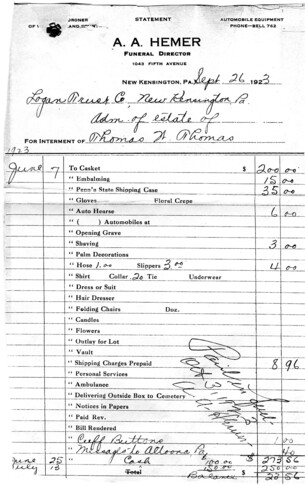 STATEMENT
AUTOMOBILE EQUIPMENT
PHONE—BELL 762
A. A. HEMER
FUNERAL DIRECTOR
1043 FIFTH AVENUE
NEW KENSINGTON, PA. Sept 26 1923
Logan Trust Co, New Kensington Pa.
Adm of estate of
FOR INTERMENT OF Thomas W. Thomas
1923
June 7 To Casket $ 200.00
" Embalming 15 00
" Penn's State Shipping Case 35 00
" Gloves Floral Crepe
" Auto Hearse 6 00
" ( ) Automobiles at
" Opening Grave
" Shaving 3 00
" Palm Decorations
" Hose 1.00 Slippers 3.00 4 00
" Shirt Collar .20 Tie Underwear
" Dress or Suit
" Hair Dresser
" Folding Chairs Doz.
" Candles
" Flowers
" Outlay for Lot
" Vault
" Shipping Charges Prepaid 8 96
" Personal Services
" Ambulance
" Delivering Outside Box to Cemetery
" Notices in Papers
" Paid Rev.
" Bill Rendered
" Cuff Buttons 1 00
" Message to Altoona, Pa 40
June 25 Cash 100.00 273 56
July 13 Total 150.00 250 00
Balance 23 56